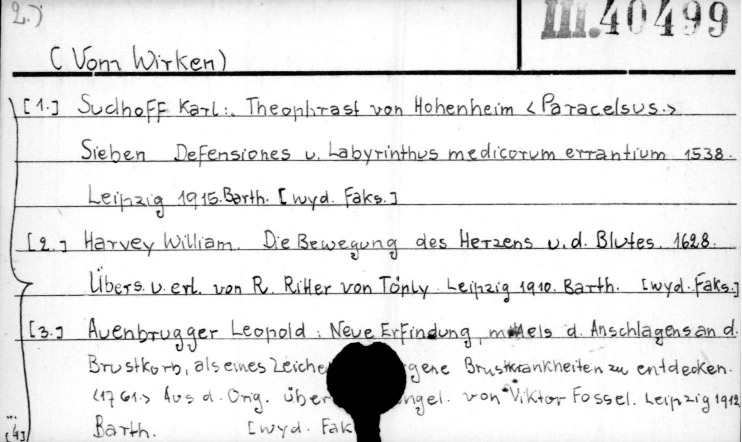 2.)
III.40499
(Vom Wirken)
[1.] Sudhoff Karl:. Theophrast von Hohenheim <Paracelsus.>
Sieben Defensiones u. Labyrinthus medicorum errantium 1538.
Leipzig 1915. Barth. [wyd. Faks.]
[2.] Harvey William. Die Bewegung des Herzens u. d. Blutes. 1628.
Übers. u. erl. von R. Ritter von Töply. Leipzig 1910. Barth. [wyd. Faks.]
[3.] Auenbrugger Leopold: Neue Erfindung, mittels d. Anschlagens an d.
Brustkorb, als eines Zeiche gene Brustkrankheiten zu entdecken.
<1761.> Aus d. Orig. über ngel. von Viktor Fossel. Leipzig 1912
Barth. [wyd. Fak
[4]